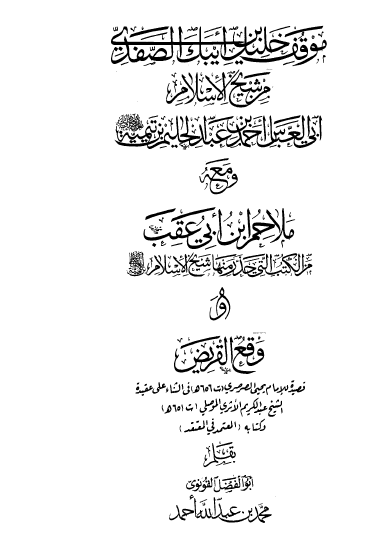 موقف خليل بن أيبك الصفدي
من شيخ الإسلام
أبي العباس أحمد بن عبد الحليم بن تيمية
ومعه
ملاحم ابن أبي عقب
من الكتب التي حذر منها شيخ الإسلام
أو
وقع القريض
قصيدة للإمام يحيى الصرصري (ت ٦٥٦هـ) في الثناء على عقيدة
الشيخ عبد الكريم الأثري الموصلي (ت ٦٥١هـ)
وكتابه (المعتمد في المعتقد)
بقلم
أبو الفضل القونوي
محمد بن عبد الله أحمد